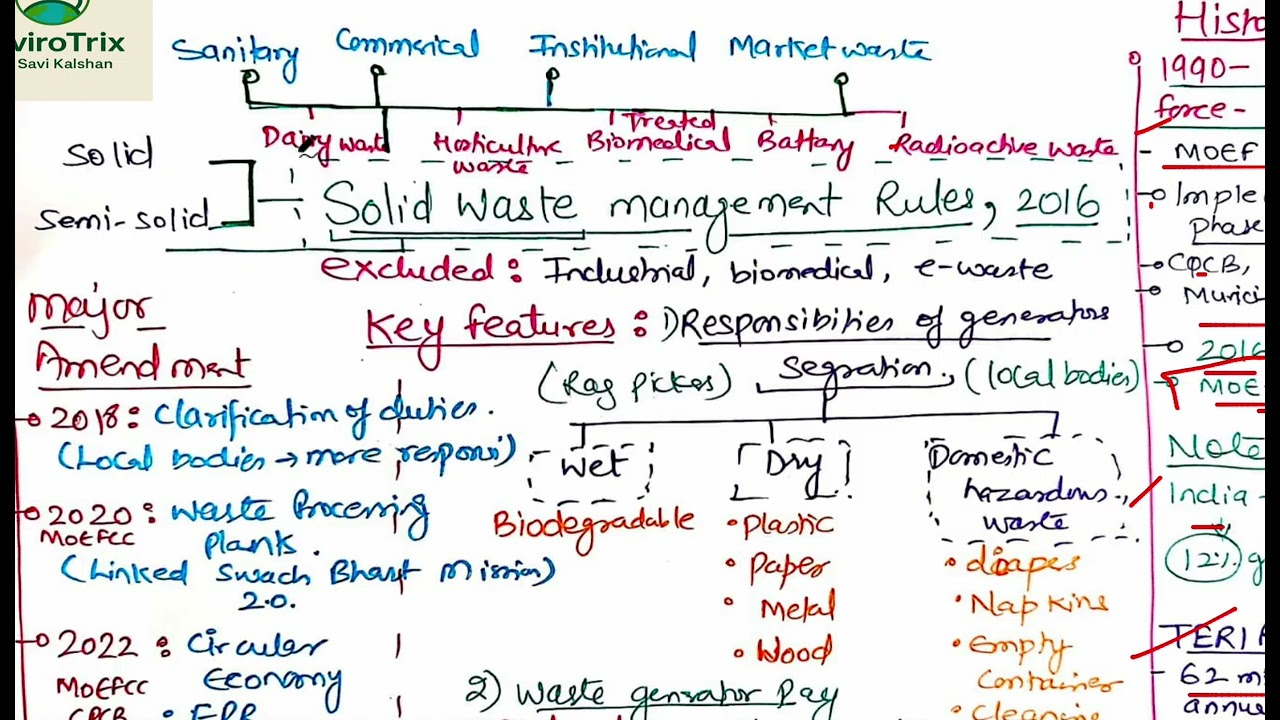 viroTrix
Savi Kalshan
Sanitary Commerical Institutional Market waste
Dairy waste Horticulture waste Treated Biomedical Battary Radioactive waste
Solid
Semi-solid
Solid waste management Rules, 2016
excluded: Industrial, biomedical, e-waste
Major
Amendment
2018: Clarification of duties.
(Local bodies → more responsi)
2020: Waste Processing
MoEFCC
plants.
(Linked Swach Bharat Mission)
2.0.
2022: Circular
Economy
MoEFCC
CPCB • EPR
Key features: 1) Responsibilities of generators
(Rag pickers) Segration, (local bodies)
Wet
Biodegradable
Dry
• Plastic
• Paper
• Metal
• Wood
Domestic
hazardous
waste
• diapes
• Napkins
• Empty
Container
• Cleaning
2) Waste genrator Pay
Histo
1990-
force-
- MOEF
Imple
Phase
CPCB,
Munici
2016
MOE
Note
India -
12% g
TERI
- 62 m
annua